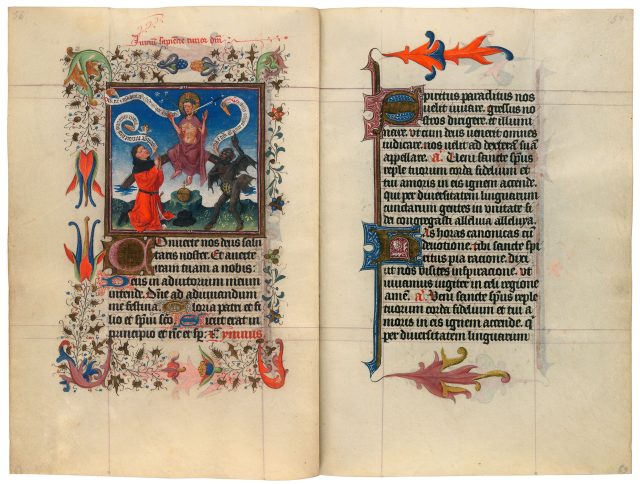 Initiu sapiencie timor dni
Converte nos deus salu
taris noster. Et averte
iram tuam a nobis.
Deus in adiutorium meum
intende. Dne ad adiuuandum
me festina. Gloria patri et fi
lio et spui sco. Sicut erat in
principio et nc et sp. ympnus
Spiritus paraclitus nos
velit iuuare. gressus no
stros dirigere. et illumi
nare. vt cum deus venerit omnes
iudicare. nos velit ad dexteram sua
appellare. a. Veni sancte spus
reple tuorum corda fidelium et
tui amoris in eis ignem accende.
qui per diuersitatem linguarum
cunctarum gentes in vnitate fi
dei congregasti alleluya alleluya.
Has horas canonicas cu
deuotione. tibi sancte spi
ritus pia racione. dixi
vt nos visites inspiracione. vt
viuamus iugiter in celi regione
ame. a. Veni sancte spus reple
tuorum corda fidelium et tui a
moris in eis ignem accende. q
per diuersitatem linguarum